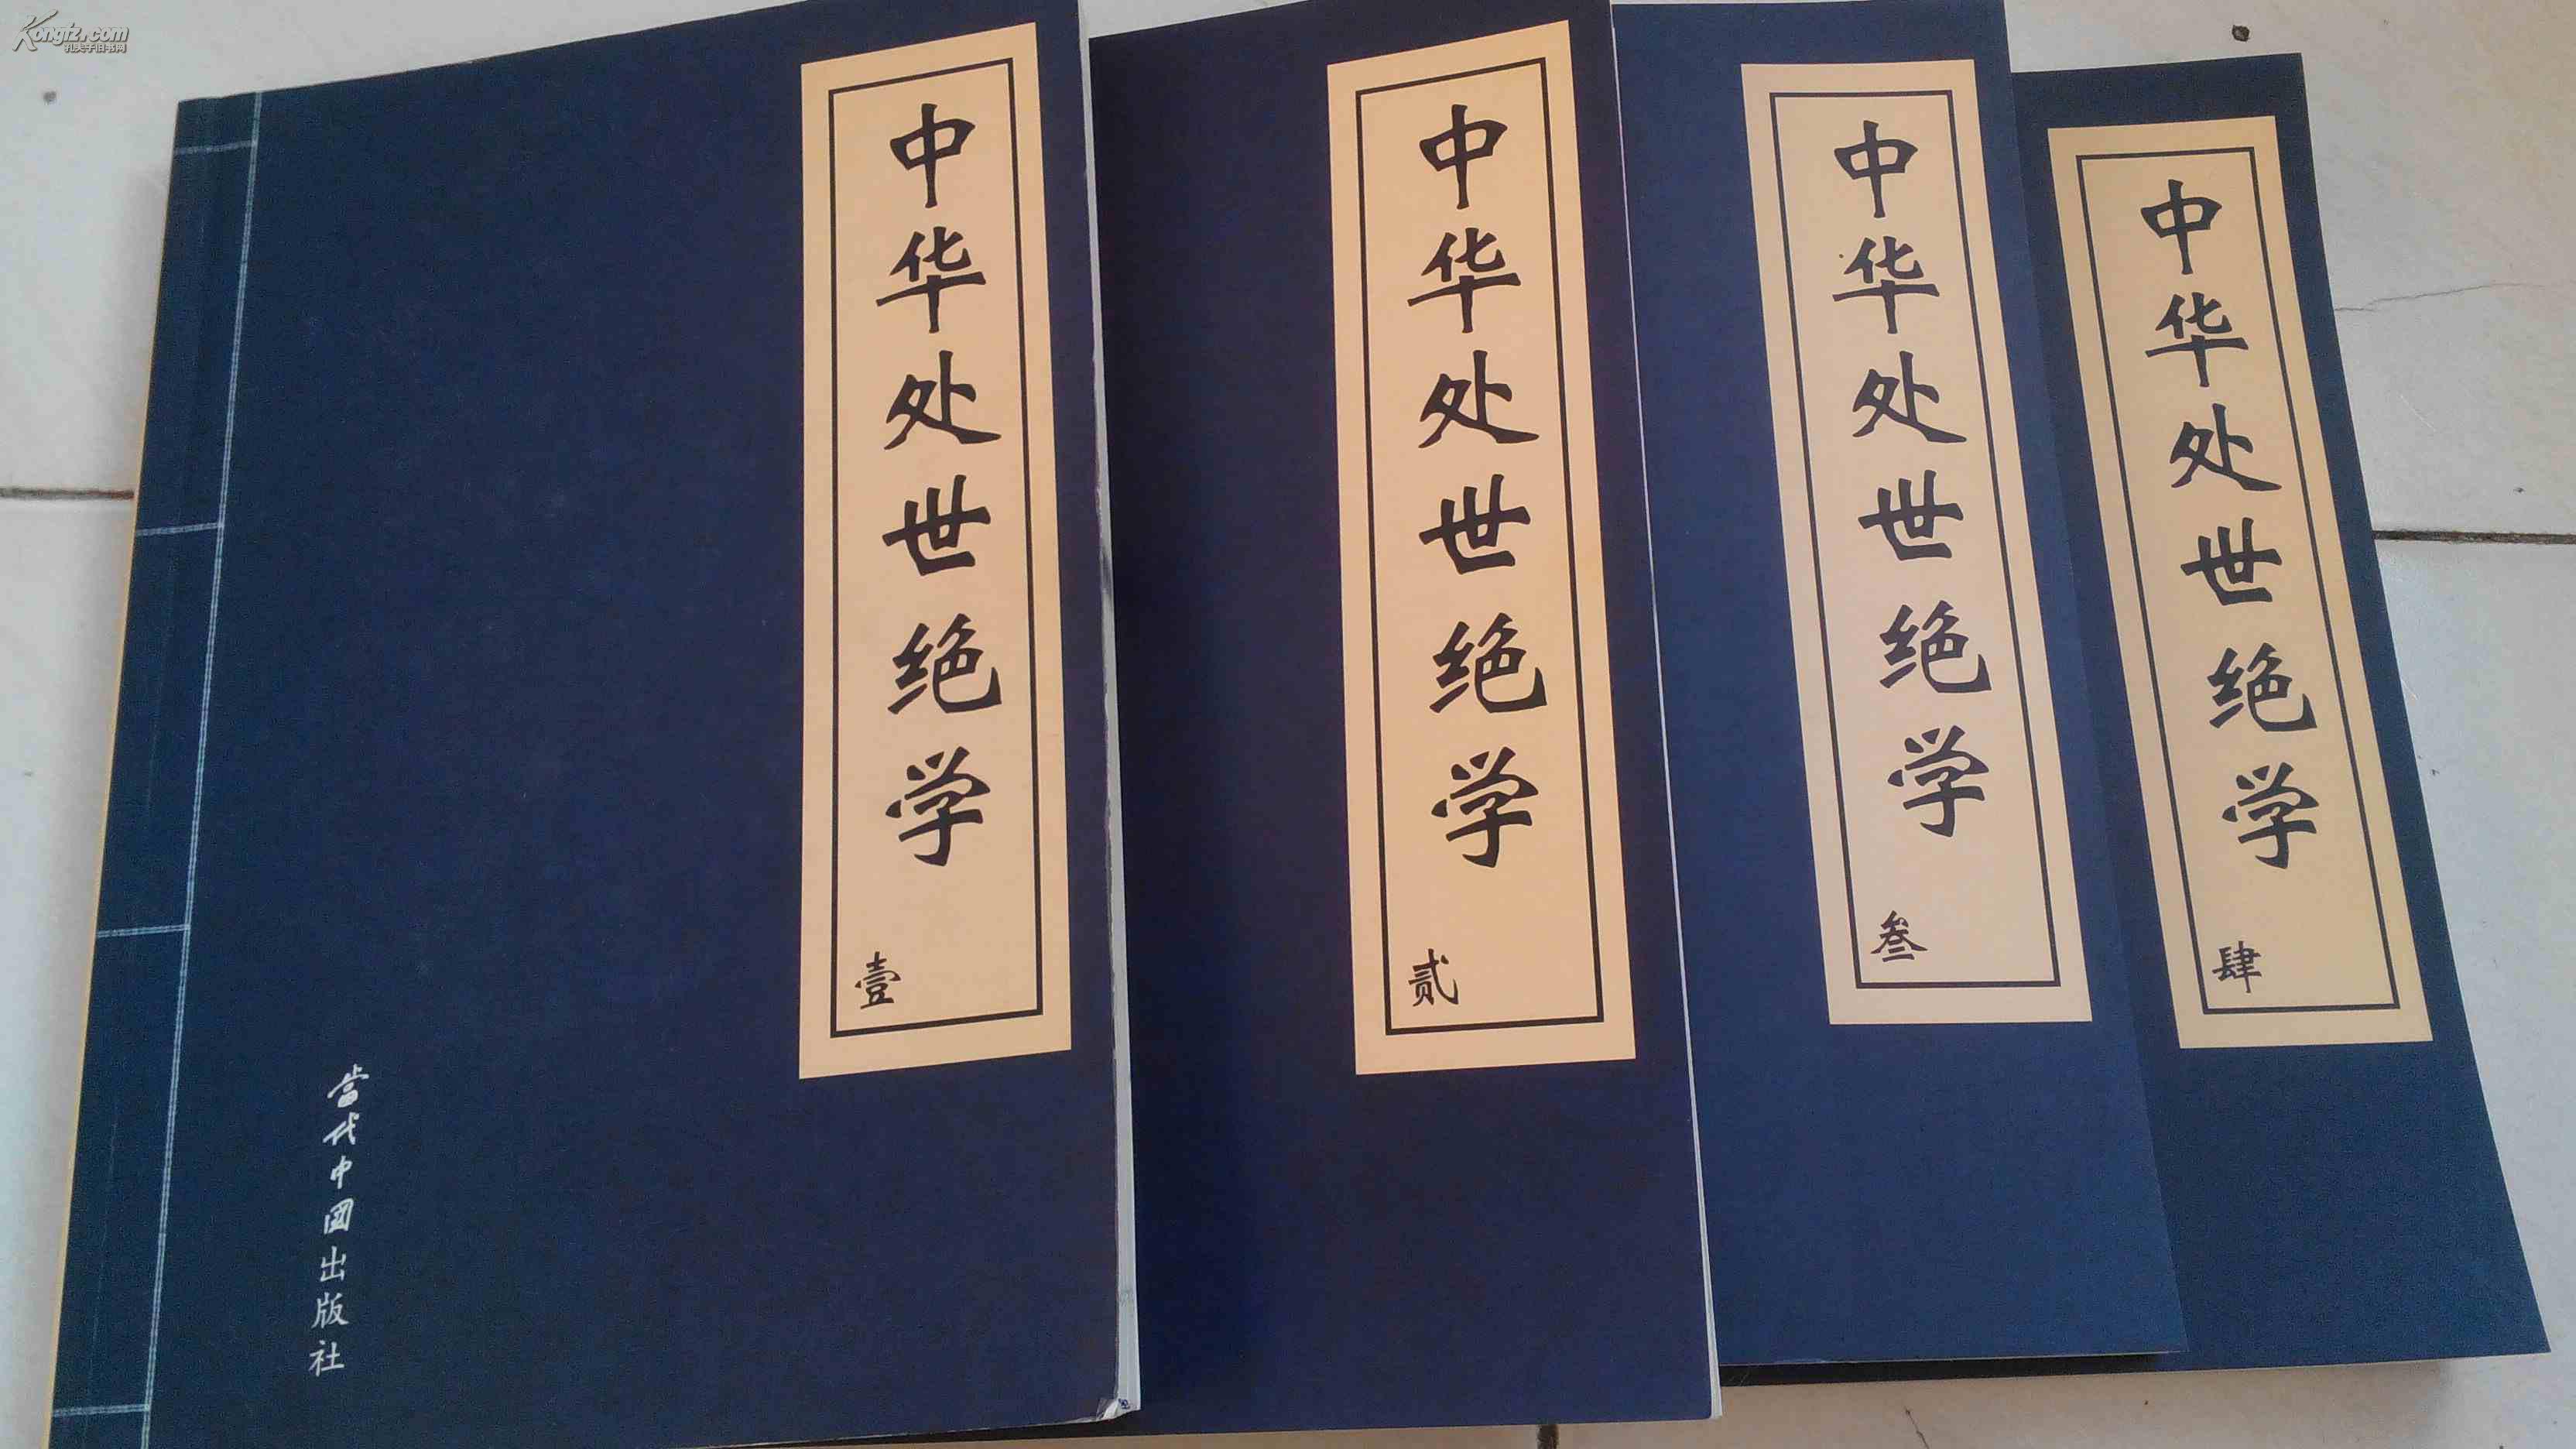 Kongfz.com
孔夫子旧书网
中华处世绝学
壹
當代中國出版社
中华处世绝学
贰
中华处世绝学
叁
中华处世绝学
肆